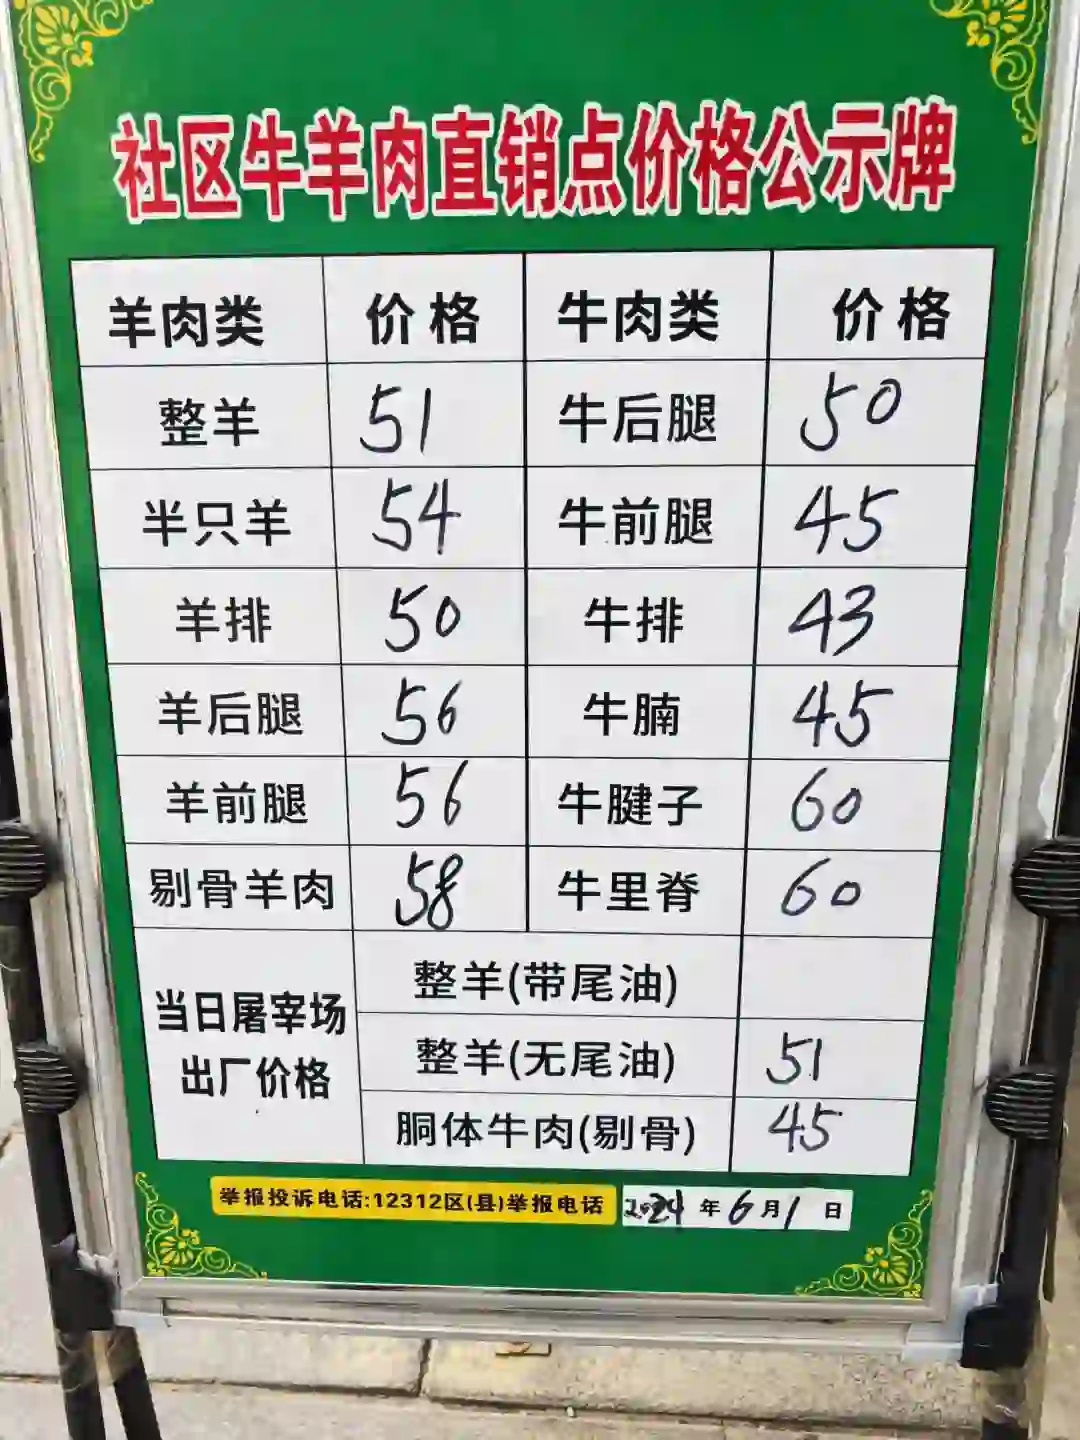 社区牛羊肉直销点价格公示牌
羊肉类 价格 牛肉类 价格
整羊 51 牛后腿 50
半只羊 54 牛前腿 45
羊排 50 牛排 43
羊后腿 56 牛腩 45
羊前腿 56 牛腱子 60
剔骨羊肉 58 牛里脊 60
当日屠宰场出厂价格
整羊(带尾油)
整羊(无尾油) 51
胴体牛肉(剔骨) 45
举报投诉电话:12312区(县)举报电话 2024年6月1日